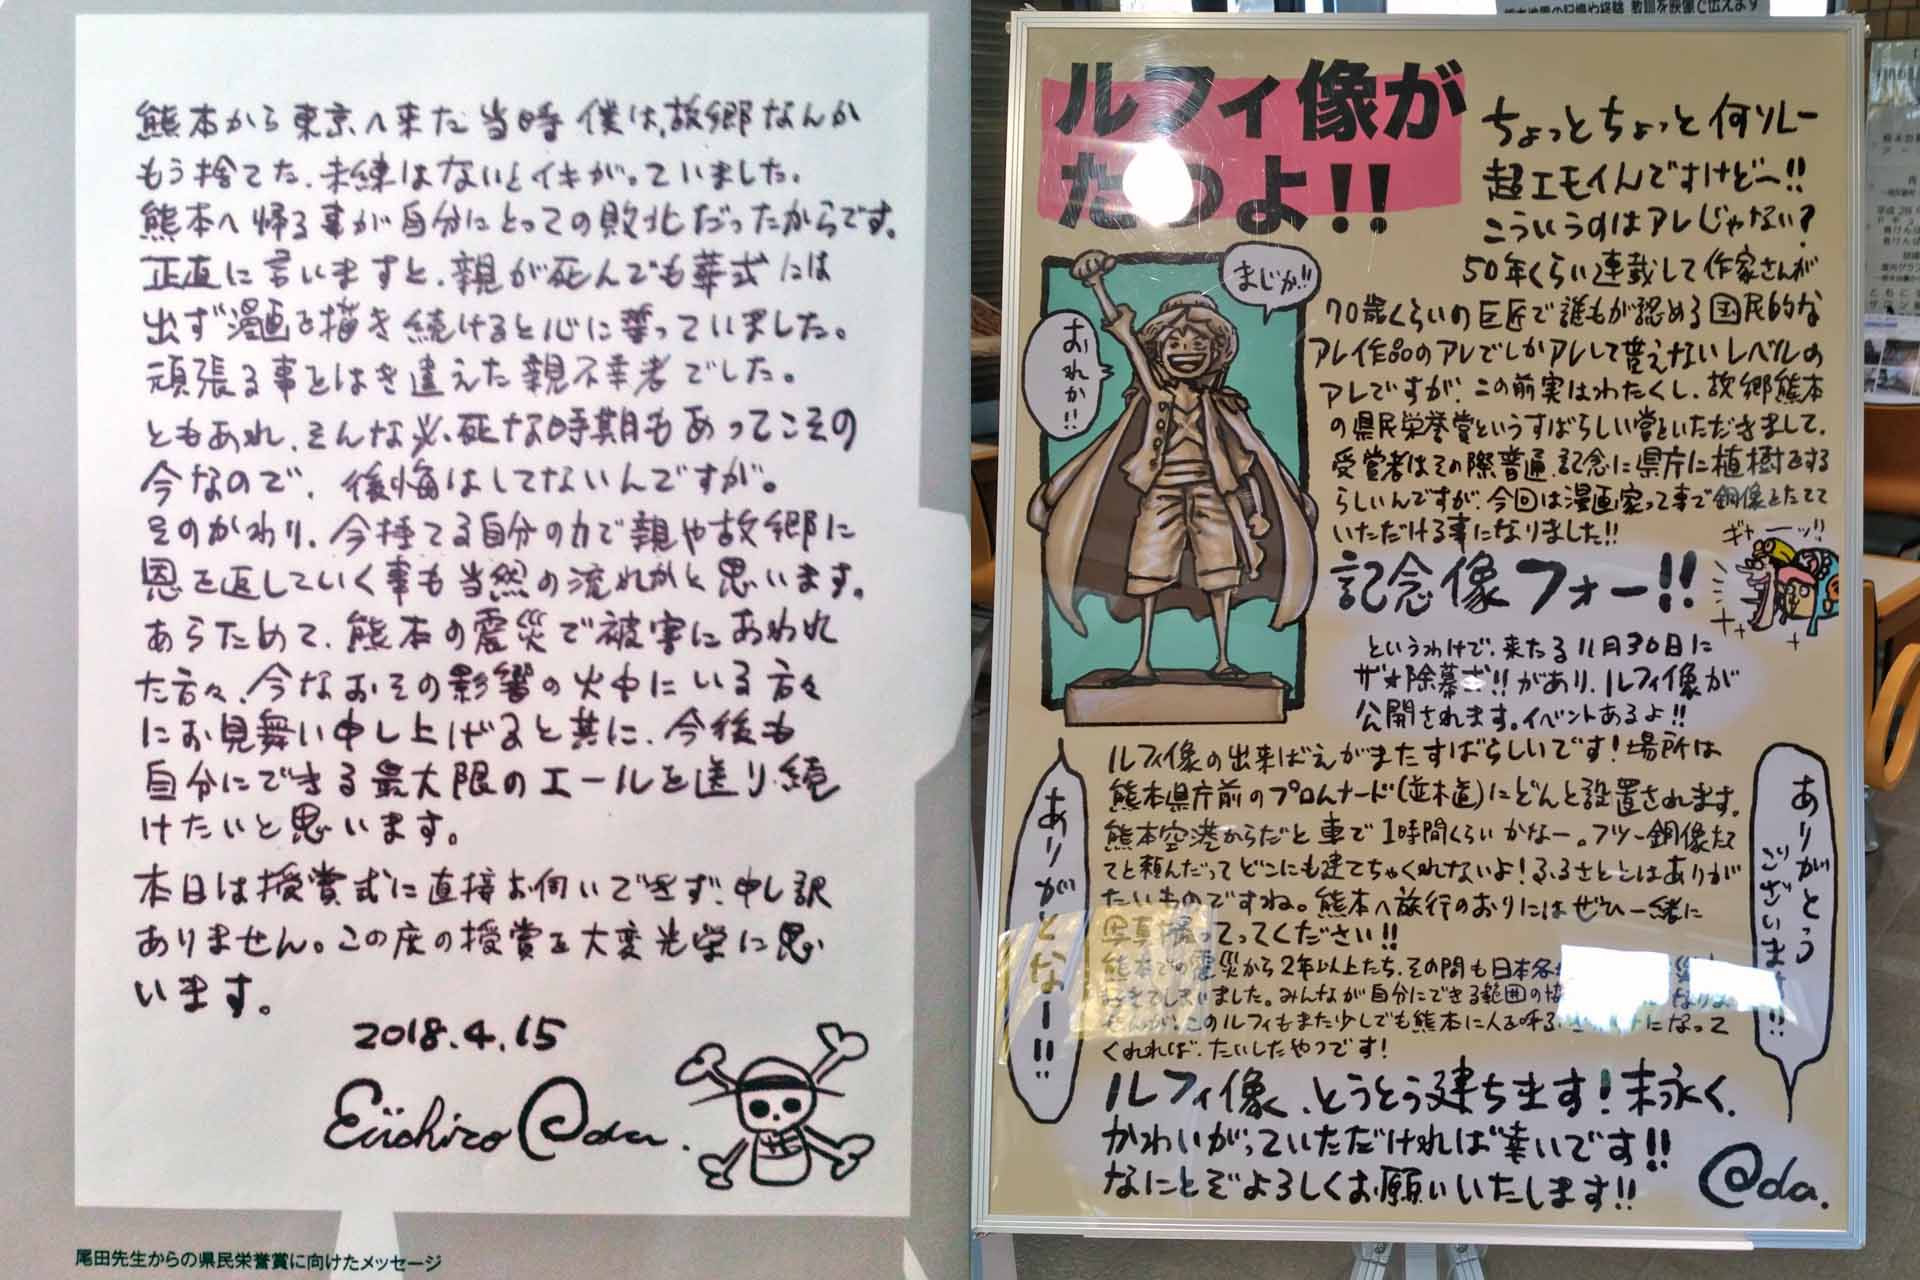 熊本から東京へ来た当時 僕は、故郷なんか
もう捨てた、未練はないとイキがっていました。
熊本へ帰る事が自分にとっての敗北だったからです。
正直に言いますと、親が死んでも葬式には
出ず漫画を描き続けると心に誓っていました。
頑張る事とはき違えた親不幸者でした。
ともあれ、そんな必死な時期もあってこその
今なので、後悔はしてないんですが。
そのかわり、今持てる自分の力で親や故郷に
恩を返していく事も当然の流れかと思います。
あらためて、熊本の震災で被害にあわれ
た方々、今なおその影響の火中にいる方々
にお見舞い申し上げると共に、今後も
自分にできる最大限のエールを送り続
けたいと思います。
本日は授賞式に直接お伺いできず、申し訳
ありません。この度の授賞を大変光栄に思
います。
2018.4.15
Eiichiro Oda.
尾田先生からの県民栄誉賞に向けたメッセージ
ルフィ像が
たつよ!!
ちょっとちょっと何ソレー
超エモイんですけど〜!!
こういうのはアレじゃない?
50年くらい連載して作家さんが
70歳くらいの巨匠で誰もが認める国民的な
アレ作品のアレでしかアレして貰えないレベルの
アレですが、この前実はわたくし、故郷熊本
の県民栄誉賞というすばらしい賞をいただきまして、
受賞者はその際普通、記念に県庁に植樹をする
らしいんですが、今回は漫画家って事で銅像をたてて
いただける事になりました!!
まじか!!
おれか!!
記念像フォー!!
ギャーッ!!
というわけで、来たる11月30日に
ザ★除幕式!!があり、ルフィ像が
公開されます。イベントあるよ!!
ルフィ像の出来ばえがまたすばらしいです!場所は
熊本県庁前のプロムナード(並木道)にどんと設置されます。
熊本空港からだと車で1時間くらいかなー。フツー銅像たて
てと頼んだってどこにも建てちゃくれないよ!ふるさととはありが
たいものですね。熊本へ旅行のおりにはぜひ一緒に
写真撮ってってください!!
熊本での震災から2年以上たち、その間も日本各
きてしまいました。みんなが自分にできる範囲の
せんが、このルフィもまた少しでも熊本に人を呼ぶ になって
くれれば、たいしたやつです!
ありがとなー!!
ありがとう
ございます!!
ルフィ像、とうとう建ちます!末永く、
かわいがっていただければ幸いです!!
なにとぞよろしくお願いいたします!!
Oda.